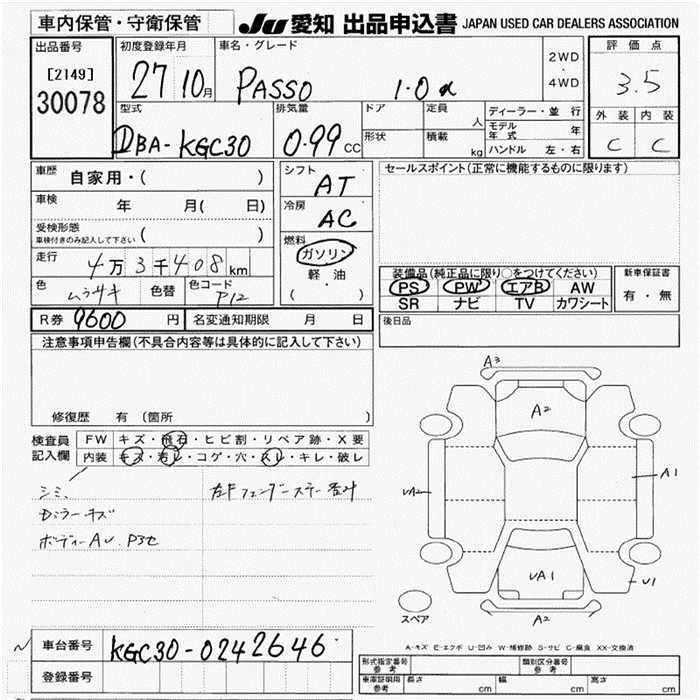 車内保管・守衛保管
JU 愛知 出品申込書 JAPAN USED CAR DEALERS ASSOCIATION
出品番号
[2149]
30078
初度登録年月
27 10月
車名・グレード
PASSO 1.0 α
2WD
・
4WD
評価点
3.5
外装 内装
C C
型式
DBA-KGC30
排気量
0.99 CC
ドア
形状
定員
人
積載
kg
ディーラー・並行
モデル年式 年
ハンドル 左・右
車歴
自家用・( )
車検
年 月( 日)
受検形態
車検付きのみ記入して下さい ( )
走行
4万3千408km
色
ムラサキ
色替
色コード
P12
シフト
AT
冷房
AC
燃料
ガソリン
軽油
( )
セールスポイント(正常に機能するものに限ります)
装備品(純正品に限り○をつけてください)
PS PW エアB AW
SR ナビ TV カワシート
新車保証書
有・無
R券 9600 円
名変通知期限 月 日
後日品
注意事項申告欄(不具合内容等は具体的に記入して下さい)
修復歴 有 (箇所 )
検査員
記入欄
FW キズ・飛石・ヒビ割・リペア跡・X要
内装 キズ・汚レ・コゲ・穴・スレ・キレ・破レ
シミ、
Dミラーキズ
ボディーAU、P3セ
左Fフェンダーステー
A3
A2
A1
UA2
UA1
U1
A2
スペア
A-キズ E-エクボ U-凹み W-補修跡 S-サビ C-腐食 XX-交換済
車台番号
KGC30-0242646
登録番号
形式指定番号
参考
類別区分番号
参考
車庫証明用
参考
長さ cm
幅 cm
高さ cm